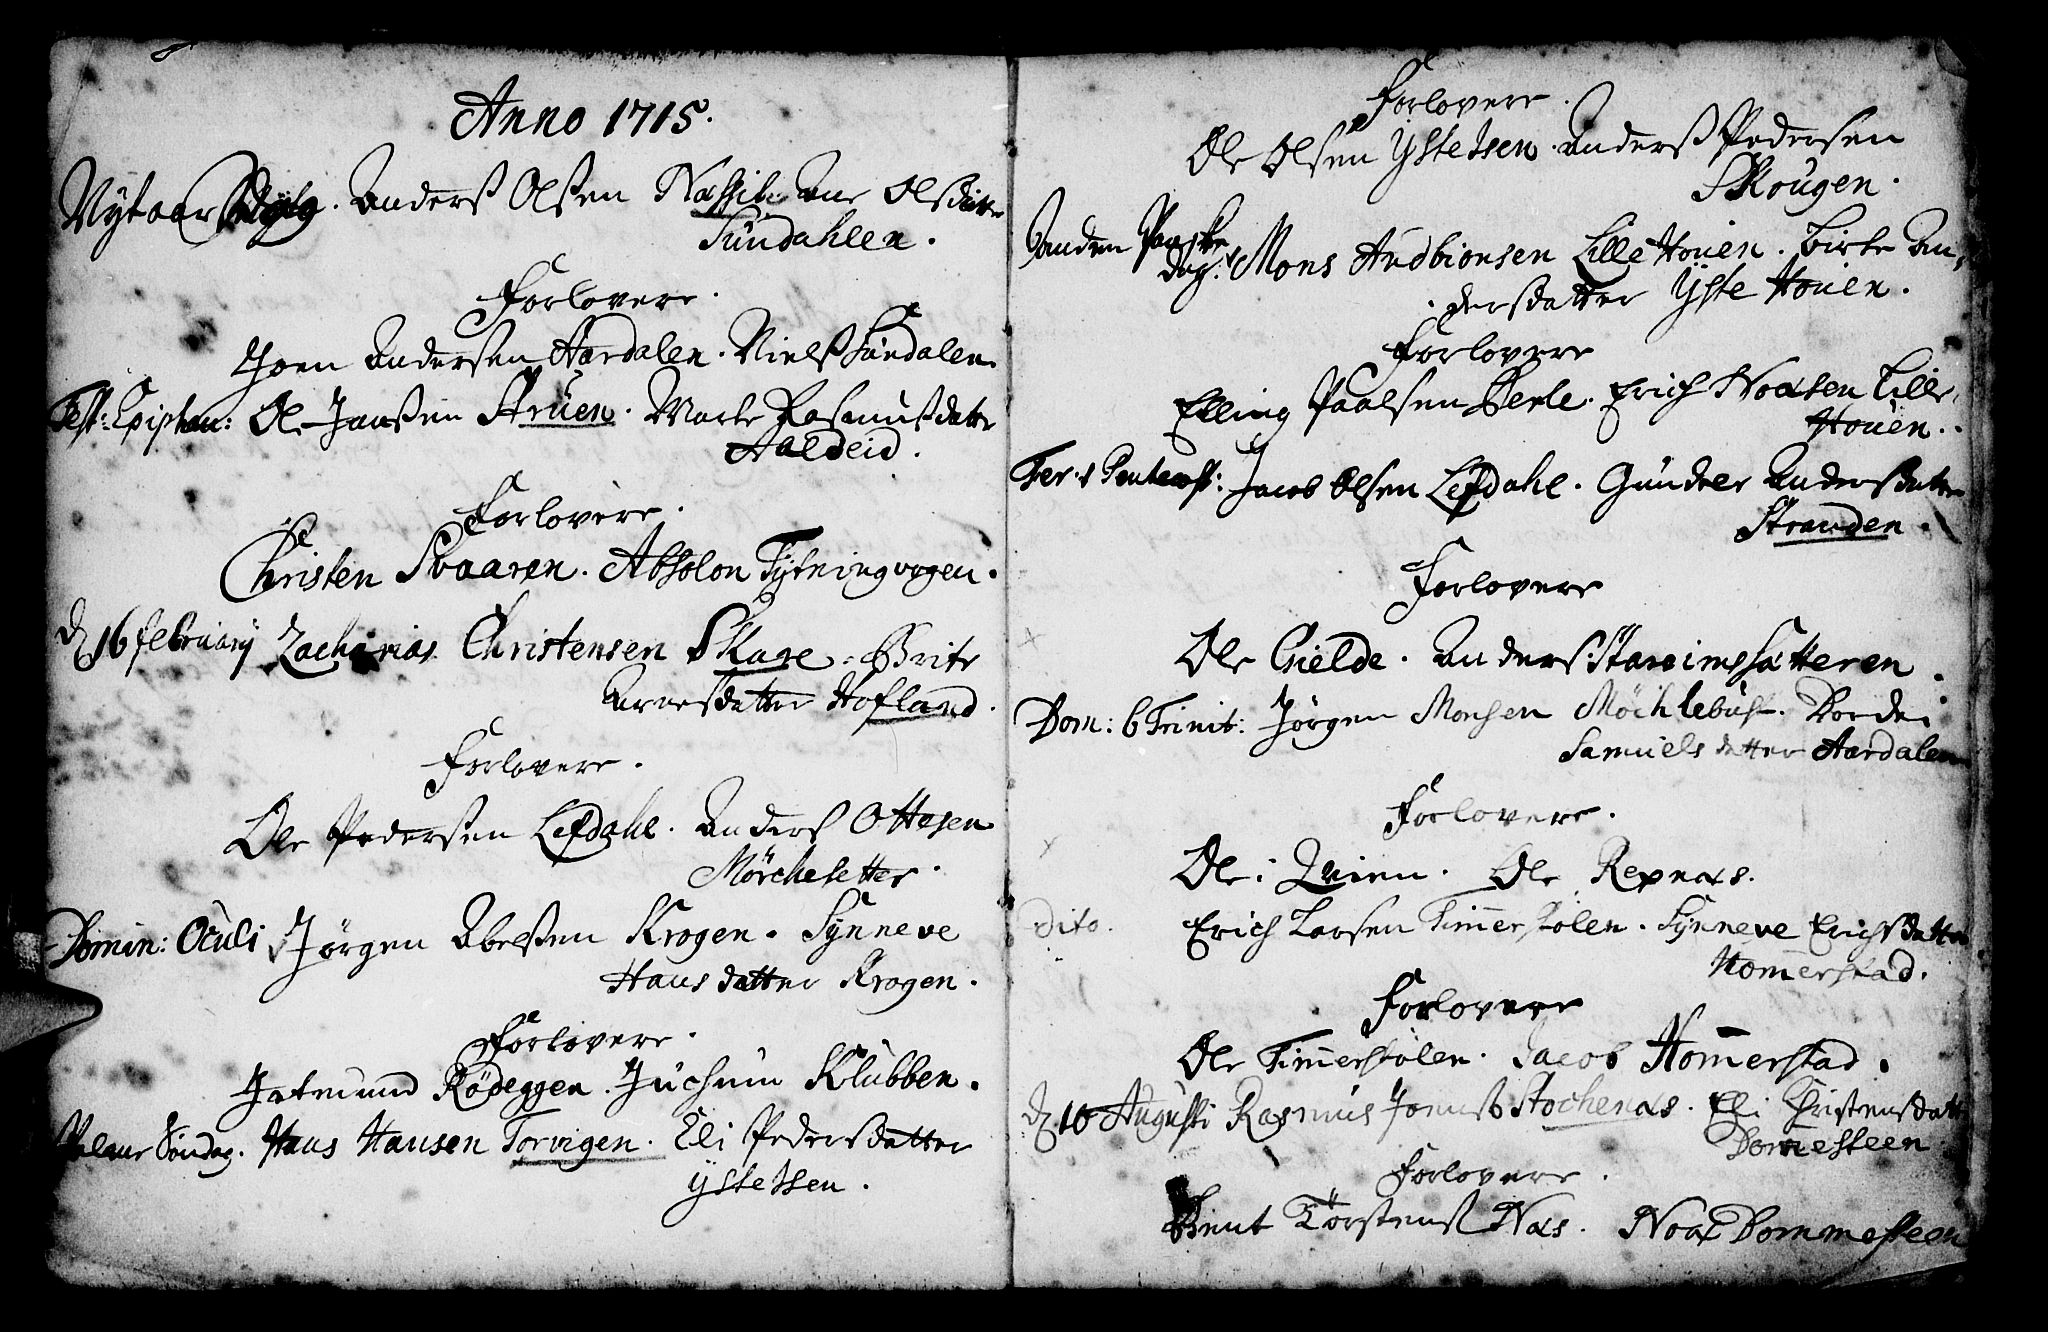 Anno 1715.
Nytaars Anders Olsen Nassil. Ane Olsdatter
Sündahlen.
Forlovere.
Joen Andersen Aardalen. Niels Sündalen
Fest: Epiphan: Ole Jansen Strüen. Marte Rasmusdatter
Aaldeid.
Forlovere.
Christen Svaaren. Absolon Tytningvogen.
d 16 february Zacharias Christensen Skare. Brite
Arnesdatter Hofland.
Forlovere.
Ole Pedersen Lefdahl. Anders Ottesen
Mörchesetter.
Domin: Oculi Jörgen Abelsen Krogen. Synneve
Hansdatter Krogen.
Forlovere.
Jetmund Rödeggen. Juchum Klübben.
Palme Söndag. Hans Hansen Torvigen. Eli Pedersdatter
Ystetsen.
Forlovere.
Ole Olsen Ystetsen. Anders Pedersen
Skougen.
Anden Paaske
dag. Mons Audbionsen Lille Houen. Birte An
dersdatter Yste Houen.
Forlovere
Elling Paalsen Berle. Erich Noxsen Lille
Houen.
Fer. 1 Pentecost: Jacob Olsen Lefdahl. Gunder Andersdatter
Stranden.
Forlovere
Ole Hielde. Anders Stareimsætteren.
Dom: 6 Trinit: Jörgen Monsen Möchlebust. Dordei
Samuelsdatter Aardalen
Forlovere.
Ole i Qvien. Ole Repnæs.
Dito. Erich Larsen Timerstolen. Synneve Erichsdatter
Homerstad.
Forlovere
Ole Timerstolen. Jacob Homerstad.
d 10 Augusti Rasmus Joens Stochenæs. Eli Christensdatter
Domesteen
Forlovere.
Bent Törstens Næs. Noæ Dommesteen